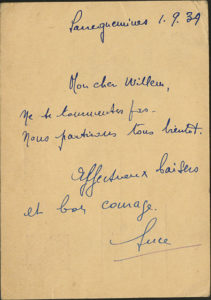 Sarreguemines 1.9.39
Mon cher Willem,
Ne te tourmentes pas.
Nous partirons tous bientôt.
Affectueux baisers
et bon courage.
Luce